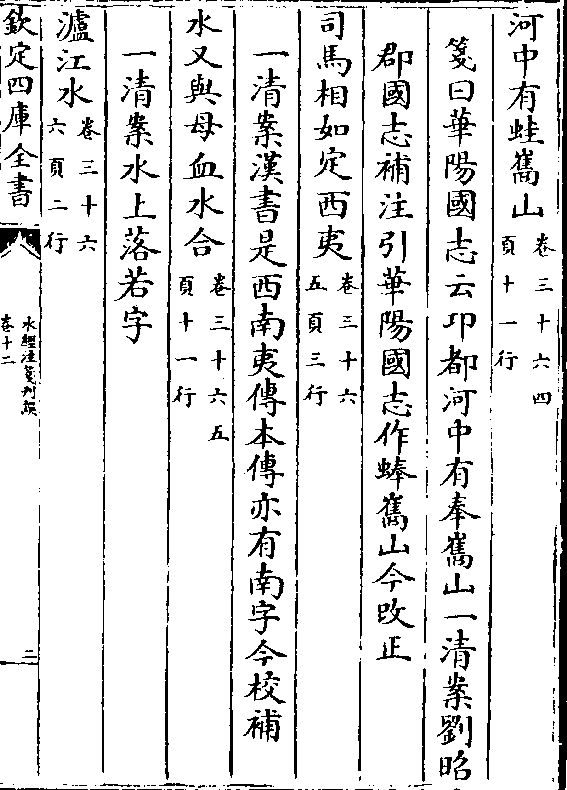 河中有蛙巂山卷三十六四頁十一行
箋曰華陽國志云卭都河中有奉巂山一清案劉昭
郡國志補注引華陽國志作蜯巂山今改正
司馬相如定西夷卷三十六五頁三行
一清案漢書是西南夷傳本傳亦有南字今校補
水又與母血水合卷三十六五頁十一行
一清案水上落若字
瀘江水卷三十六六頁二行
欽定四庫全書
水經注箋刋誤
卷十二
二